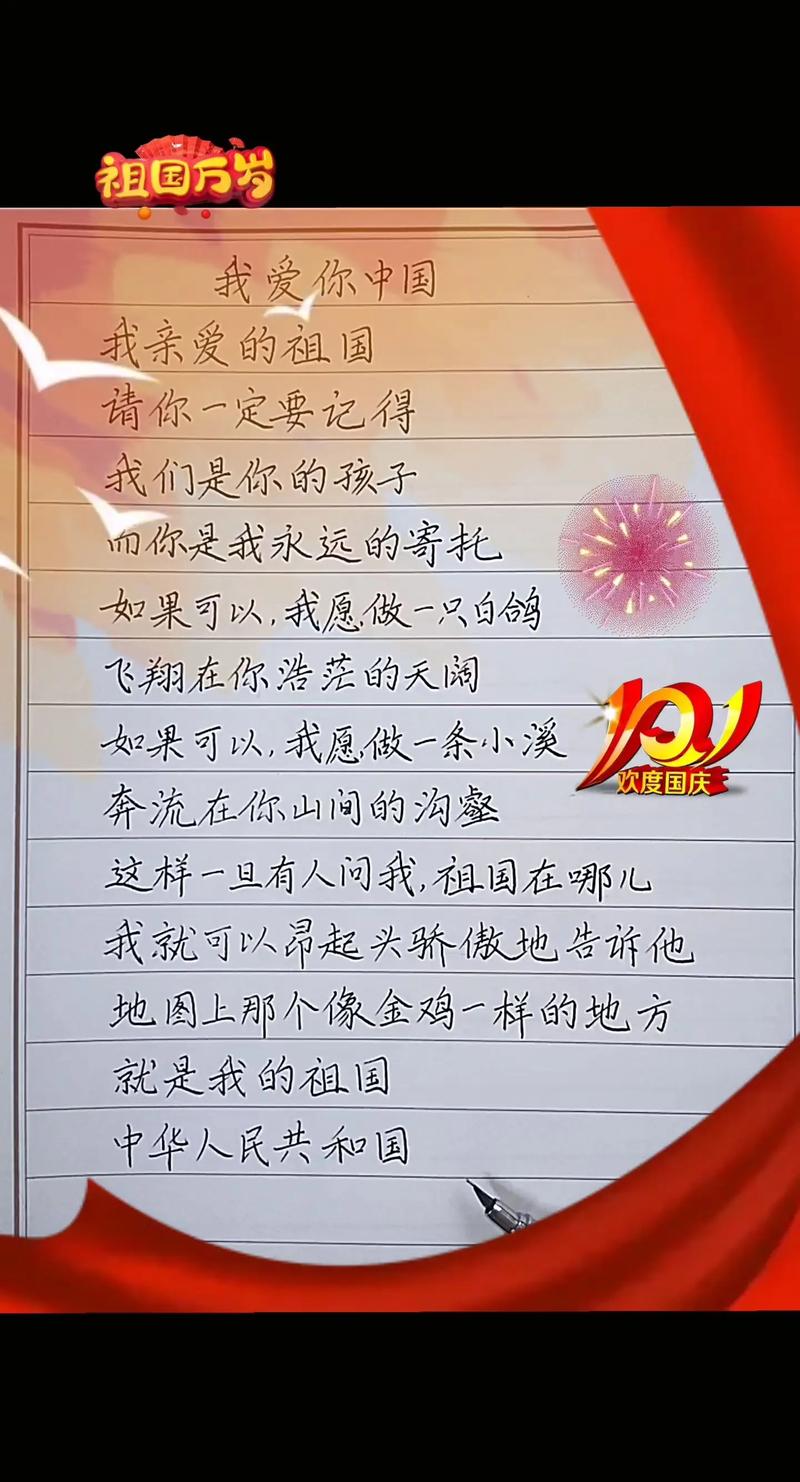 祖国万岁
我爱你中国
我亲爱的祖国
请你一定要记得
我们是你的孩子
而你是我永远的寄托
如果可以,我愿做一只白鸽
飞翔在你浩茫的天阔
如果可以,我愿做一条小溪
奔流在你山间的沟壑
这样一旦有人问我,祖国在哪儿
我就可以昂起头骄傲地告诉他
地图上那个像金鸡一样的地方
就是我的祖国
中华人民共和国
10.1
欢度国庆